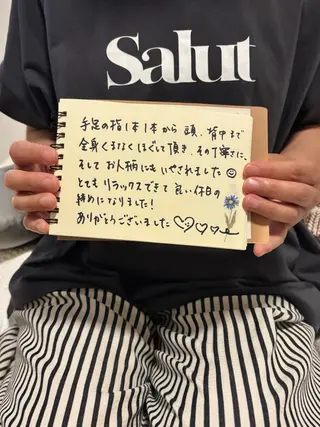 Salut
手足の指1本1本から 頭、背中まで
全身くまなくほぐして頂き、その丁寧さに、
そして お人柄にも いやされました☺
とても リラックスできて 良い休日の
締めになりました!
ありがとうございました